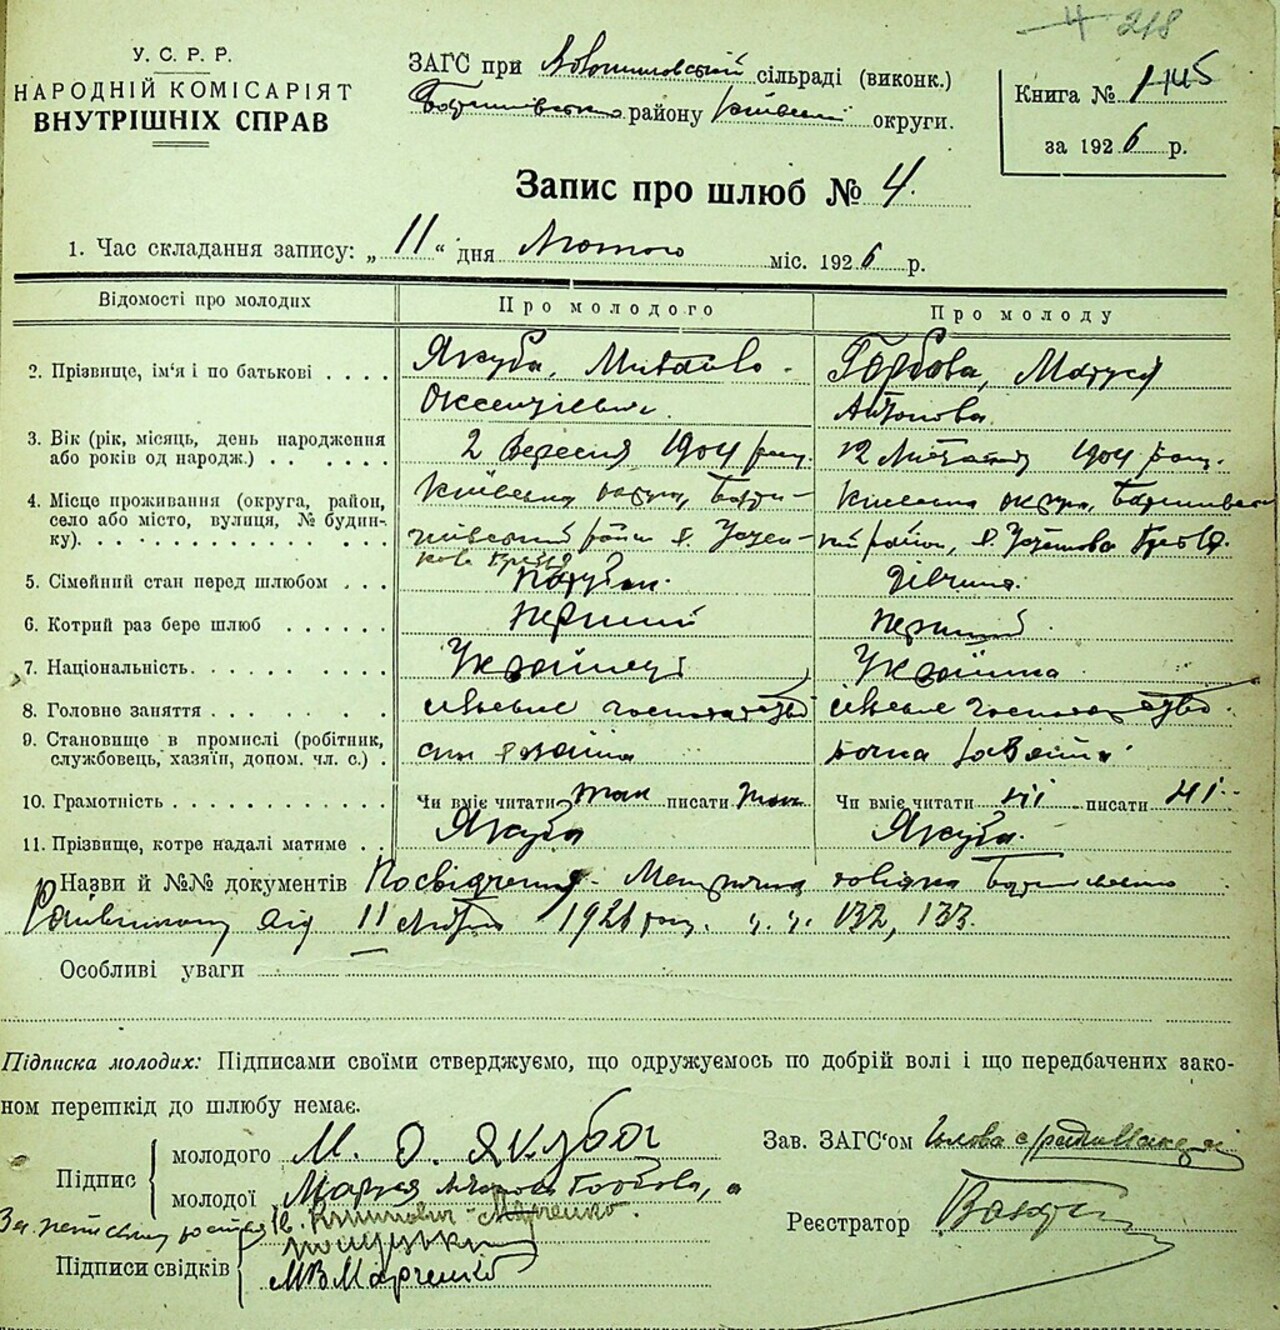 218
У. С. Р. Р.
НАРОДНІЙ КОМІСАРІЯТ
ВНУТРІШНІХ СПРАВ
ЗАГС при сільраді (виконк.)
району округи.
Книга № 145
за 1926 р.
Запис про шлюб № 4.
1. Час складання запису: „11“ дня Лютого міс. 1926 р.
Відомості про молодих Про молодого Про молоду
2. Прізвище, ім'я і по батькові . . . . Якуба, Михайло Горбова, Маруся
Оксентієвич. Антонова
3. Вік (рік, місяць, день народження 2 Вересня 1904 року. 12 1904 року.
або років од народж.) . . . . . . .
4. Місце проживання (округа, район, Київська округа, Бари- Київська округа,
село або місто, вулиця, № будин- шівський район с. район, с. Гребля
ку). . . . . . . . . . . . . . . кова Гребля
5. Сімейний стан перед шлюбом . . . Парубок. Дівчина.
6. Котрий раз бере шлюб . . . . . . перший перший
7. Національність. . . . . . . . . Українець Українка
8. Головне заняття . . . . . . . сільське господарство сільське господарство.
9. Становище в промислі (робітник, син хазяїна дочка хазяїна
службовець, хазяїн, допом. чл. с.) .
10. Грамотність . . . . . . . . . . . . Чи вміє читати так писати так Чи вміє читати ні писати ні
11. Прізвище, котре надалі матиме . . Якуба Якуба.
Назви й №№ документів Посвідчення - Метрична
Райвиконкому від 11 Лютого 1926 року. ч. ч. 132, 133.
Особливі уваги
Підписка молодих: Підписами своїми стверджуємо, що одружуємось по добрій волі і що передбачених зако-
ном перешкід до шлюбу немає.
Підпис
молодого М. О. Якуба
молодої Маруся Антонова Горбова, а
За Марченко.
Підписи свідків
МВМарченко
Зав. ЗАГС'ом Голова сільради
Реєстратор